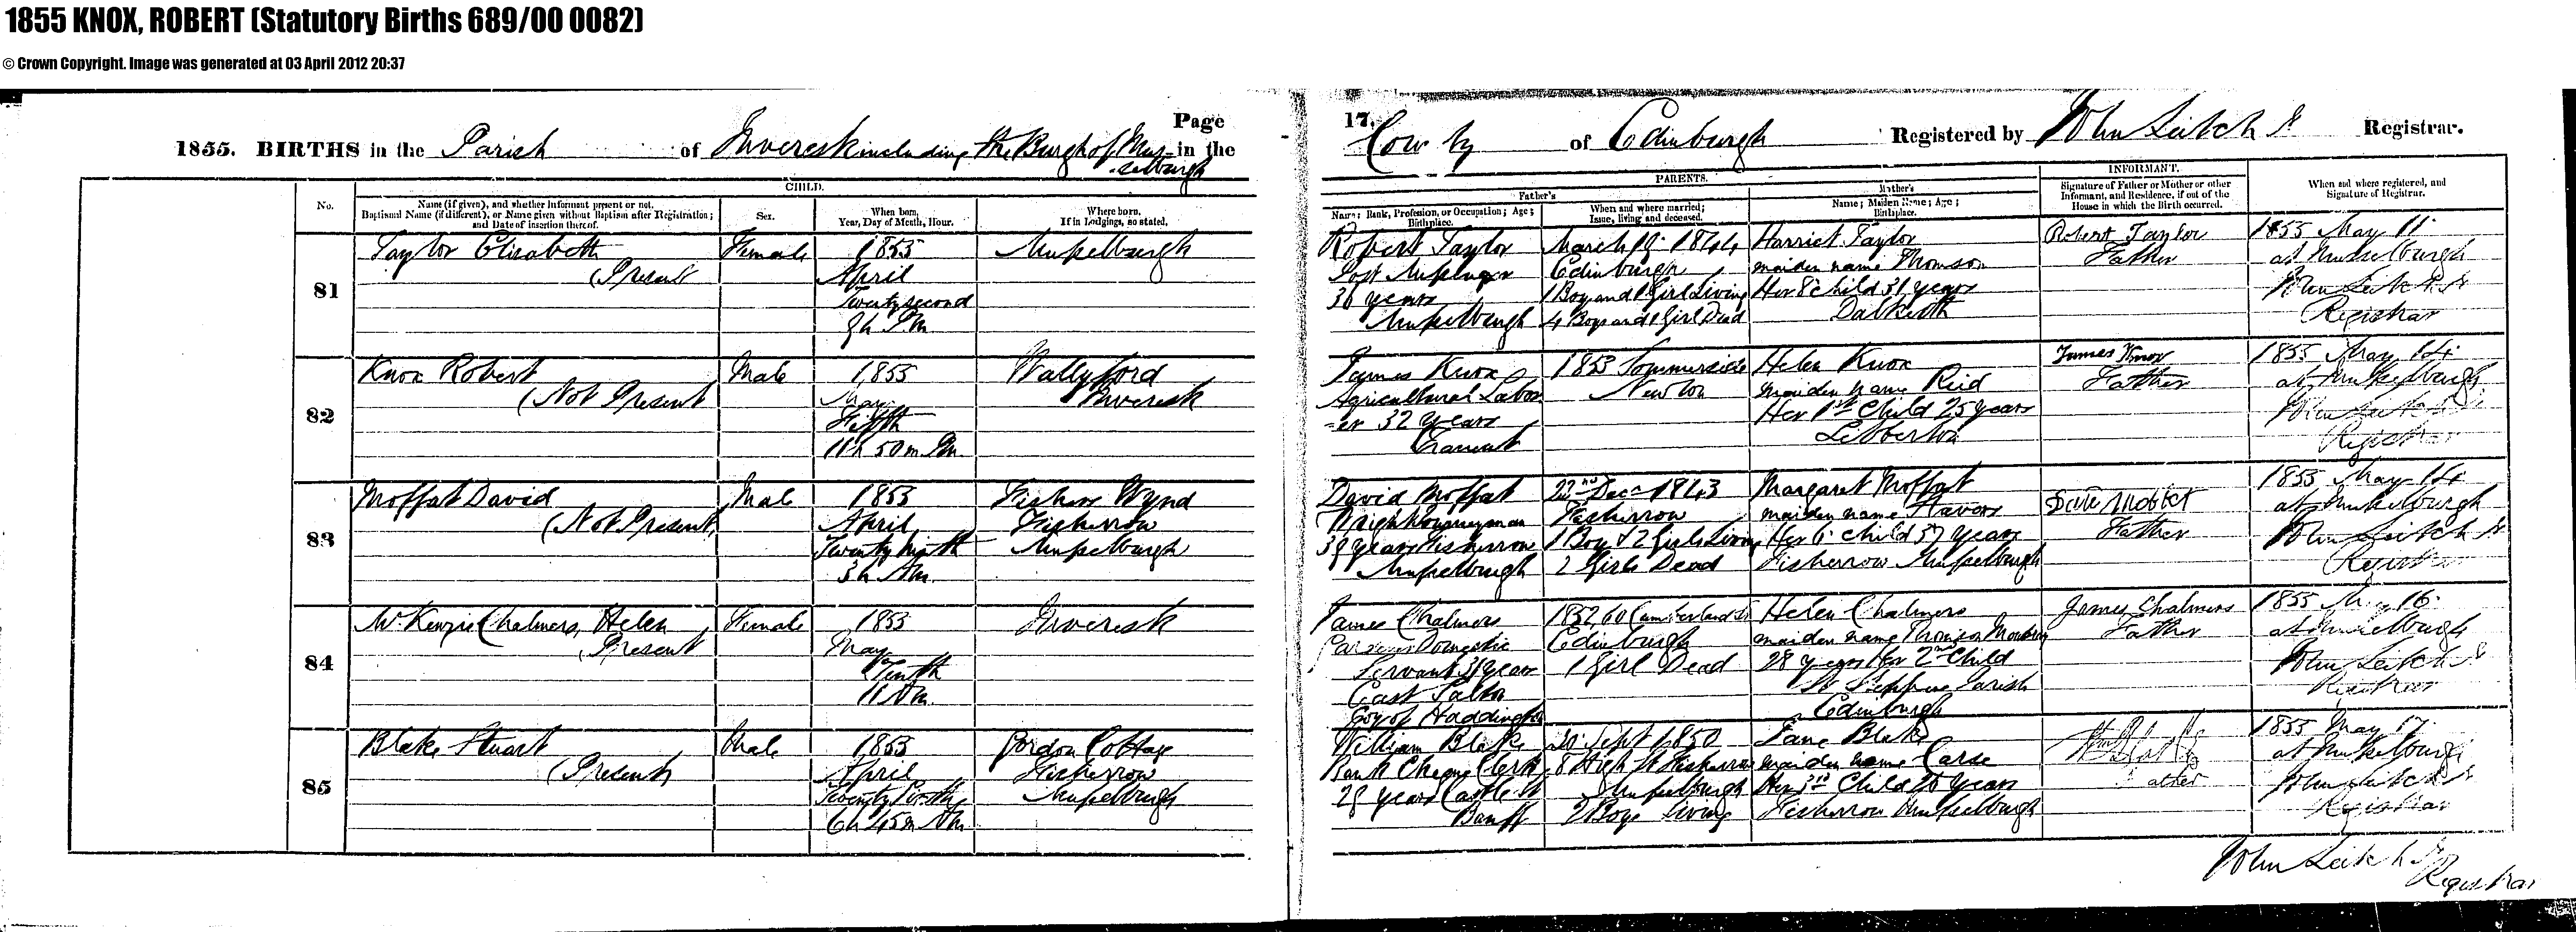 1855 KNOX, ROBERT (Statutory Births 689/00 0082)
© Crown Copyright. Image was generated at 03 April 2012 20:37
Page 17.
1855. BIRTHS in the Parish of Inveresk including the Burgh of Mus-selburgh in the County of Edinburgh Registered by John Leitch Registrar.
CHILD.
PARENTS.
INFORMANT.
No.
Name (if given), and whether Informant present or not.
Baptismal Name (if different), or Name given without Baptism after Registration;
and Date of insertion thereof.
Sex.
When born,
Year, Day of Month, Hour.
Where born,
If in Lodgings, so stated.
Father's
Name; Rank, Profession, or Occupation; Age;
Birthplace.
When and where married;
Issue, living and deceased.
Mother's
Name; Maiden Name; Age;
Birthplace.
Signature of Father or Mother or other
Informant, and Residence, if out of the
House in which the Birth occurred.
When and where registered, and
Signature of Registrar.
81
Taylor Elizabeth
(Present
Female
1855
April
Twenty second
9h PM
Musselburgh
Robert Taylor
Post
36 years
Musselburgh
March 19. 1844
Edinburgh
1 Boy and 1 Girl Living
4 Boys and 1 Girl Dead
Harriet Taylor
maiden name Thomson
Her 8 Child 31 years
Dalkeith
Robert Taylor
Father
1855 May 11.
at Musselburgh
John Leitch
Registrar
82
Knox Robert
(Not Present
Male
1855
May
Fifth
11h 50m PM
Wallyford
Inveresk
James Knox
Agricultural Labor
-er 32 years
Tranent
1853 Sommerside
Newton
Helen Knox
maiden name Reid
Her 1st Child 25 years
Libberton
James Knox
Father
1855 May 14.
at Musselburgh
John Leitch
Registrar
83
Moffat David
(Not Present
Male
1855
April
Twenty Ninth
3h AM.
Fishers Wynd
Fisherrow
Musselburgh
David Moffat
39 years Fisherrow
Musselburgh
22nd Decr 1843
Fisherrow
1 Boy & 2 Girls Living
2 Girls Dead
Margaret Moffat
maiden name
Her 6 Child 37 years
Fisherrow Musselburgh
Father
1855 May 14.
at Musselburgh
John Leitch
Registrar
84
McKenzie Chalmers, Helen
Present
Female
1855
May
Tenth
11 AM.
Inveresk
James Chalmers
Domestic
Servant 31 years
East Salton
Coy of Haddington
1852, 60 Cumberland St
Edinburgh
1 Girl Dead
Helen Chalmers
maiden name Thomson
28 years Her 2nd Child
Parish
Edinburgh
James Chalmers
Father
1855 May 16.
at Musselburgh
John Leitch
Registrar
85
Blake Stuart
(Present
Male
1855
April
Twenty
6h 45m AM
Gordon Cottage
Fisherrow
Musselburgh
William Blake
Bank Clerk
29 years Castle St
Banff
20 Sept 1850
8 High St Fisherrow
Musselburgh
2 Boys living
Jane Blake
maiden name Carse
Her 3rd Child 26 years
Fisherrow Musselburgh
Father
1855 May 17.
at Musselburgh
John Leitch
Registrar
John Leitch
Registrar